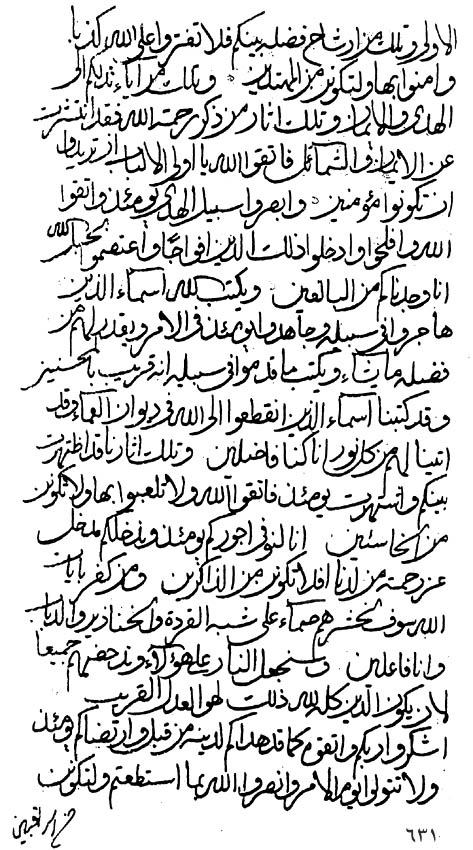 الاولى وتلك من ارشاح فضله بينكم فلا تفتروا على الله كذبا
وامنوا بها ولتكونن من المهتدين وتلك من اناء ثدلكم الى
الهدى والايمان وتلك اثار من ذكر رحمة الله فقد انتشرت
عن الايمان والشمائل فاتقوا الله يا اولى الالباب ان تريدوا
ان تكونوا مؤمنين وابصروا سبيل الهدى يومئذ واتقوا
الله وافلحوا وادخلوا ذلك الدين افواجا واعتصموا بحبل الله
انا وجدناكم من البالغين ويكتب الله اسماء الذين
هاجروا في سبيله وجاهدوا يومئذ في الامر ويقدر لهم من
فضله ما يشاء ويكتب ما قدموا في سبيله انه قريب بالمحسنين
وقد كتبنا اسماء الذين انقطعوا الى الله في ديوان العماء وقد
اتينا لهم من كل نور انا كنا فاضلين وتلك اثارنا قد اظهرت
بينكم واشتهرت يومئذ فاتقوا الله ولا تلعبوا بها ولا تكونن
من الخاسئين انا لنوفي اجوركم يومئذ وندخلكم مدخل
عز رحمة من لدنا افلا تكونن من الذاكرين ومن كفر بايات
الله سوف نحشرهم صماء على شبه القردة والخنازير والذباب
وانا فاعلين وسنجعل النار على هؤلاء وندحضهم جميعا
لان يكون الدين كله لله ذلك هو العدل القريب
اشكروا ربكم واتقوه كما قد هداكم لدينه من قبل وارتضاكم يومئذ
ولا تتولوا يوم الامر وانصروا الله بما استطعتم ولتكونن
٦٣١